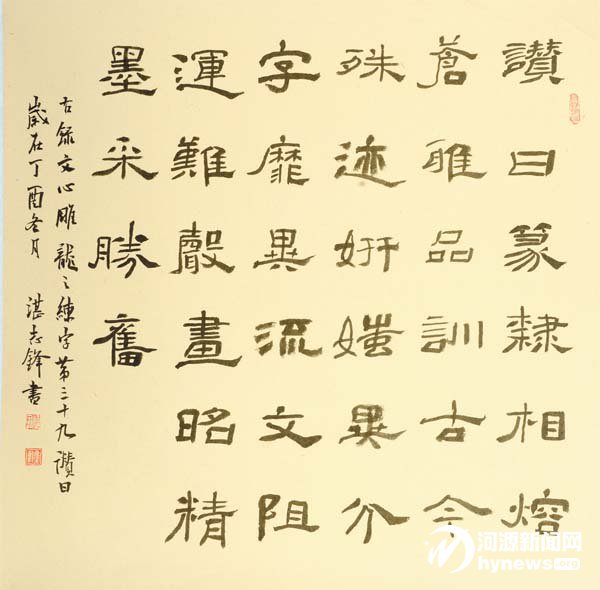 讚曰篆隸相熔
蒼雅品訓古今
殊迹妍媸異分
字靡異流文阻
運難聲畫昭精
墨采勝奮
右錄文心雕龍之練字第三十九讚曰
歲在丁酉冬月 湛志鋒書
河源新闻网
hynews.org